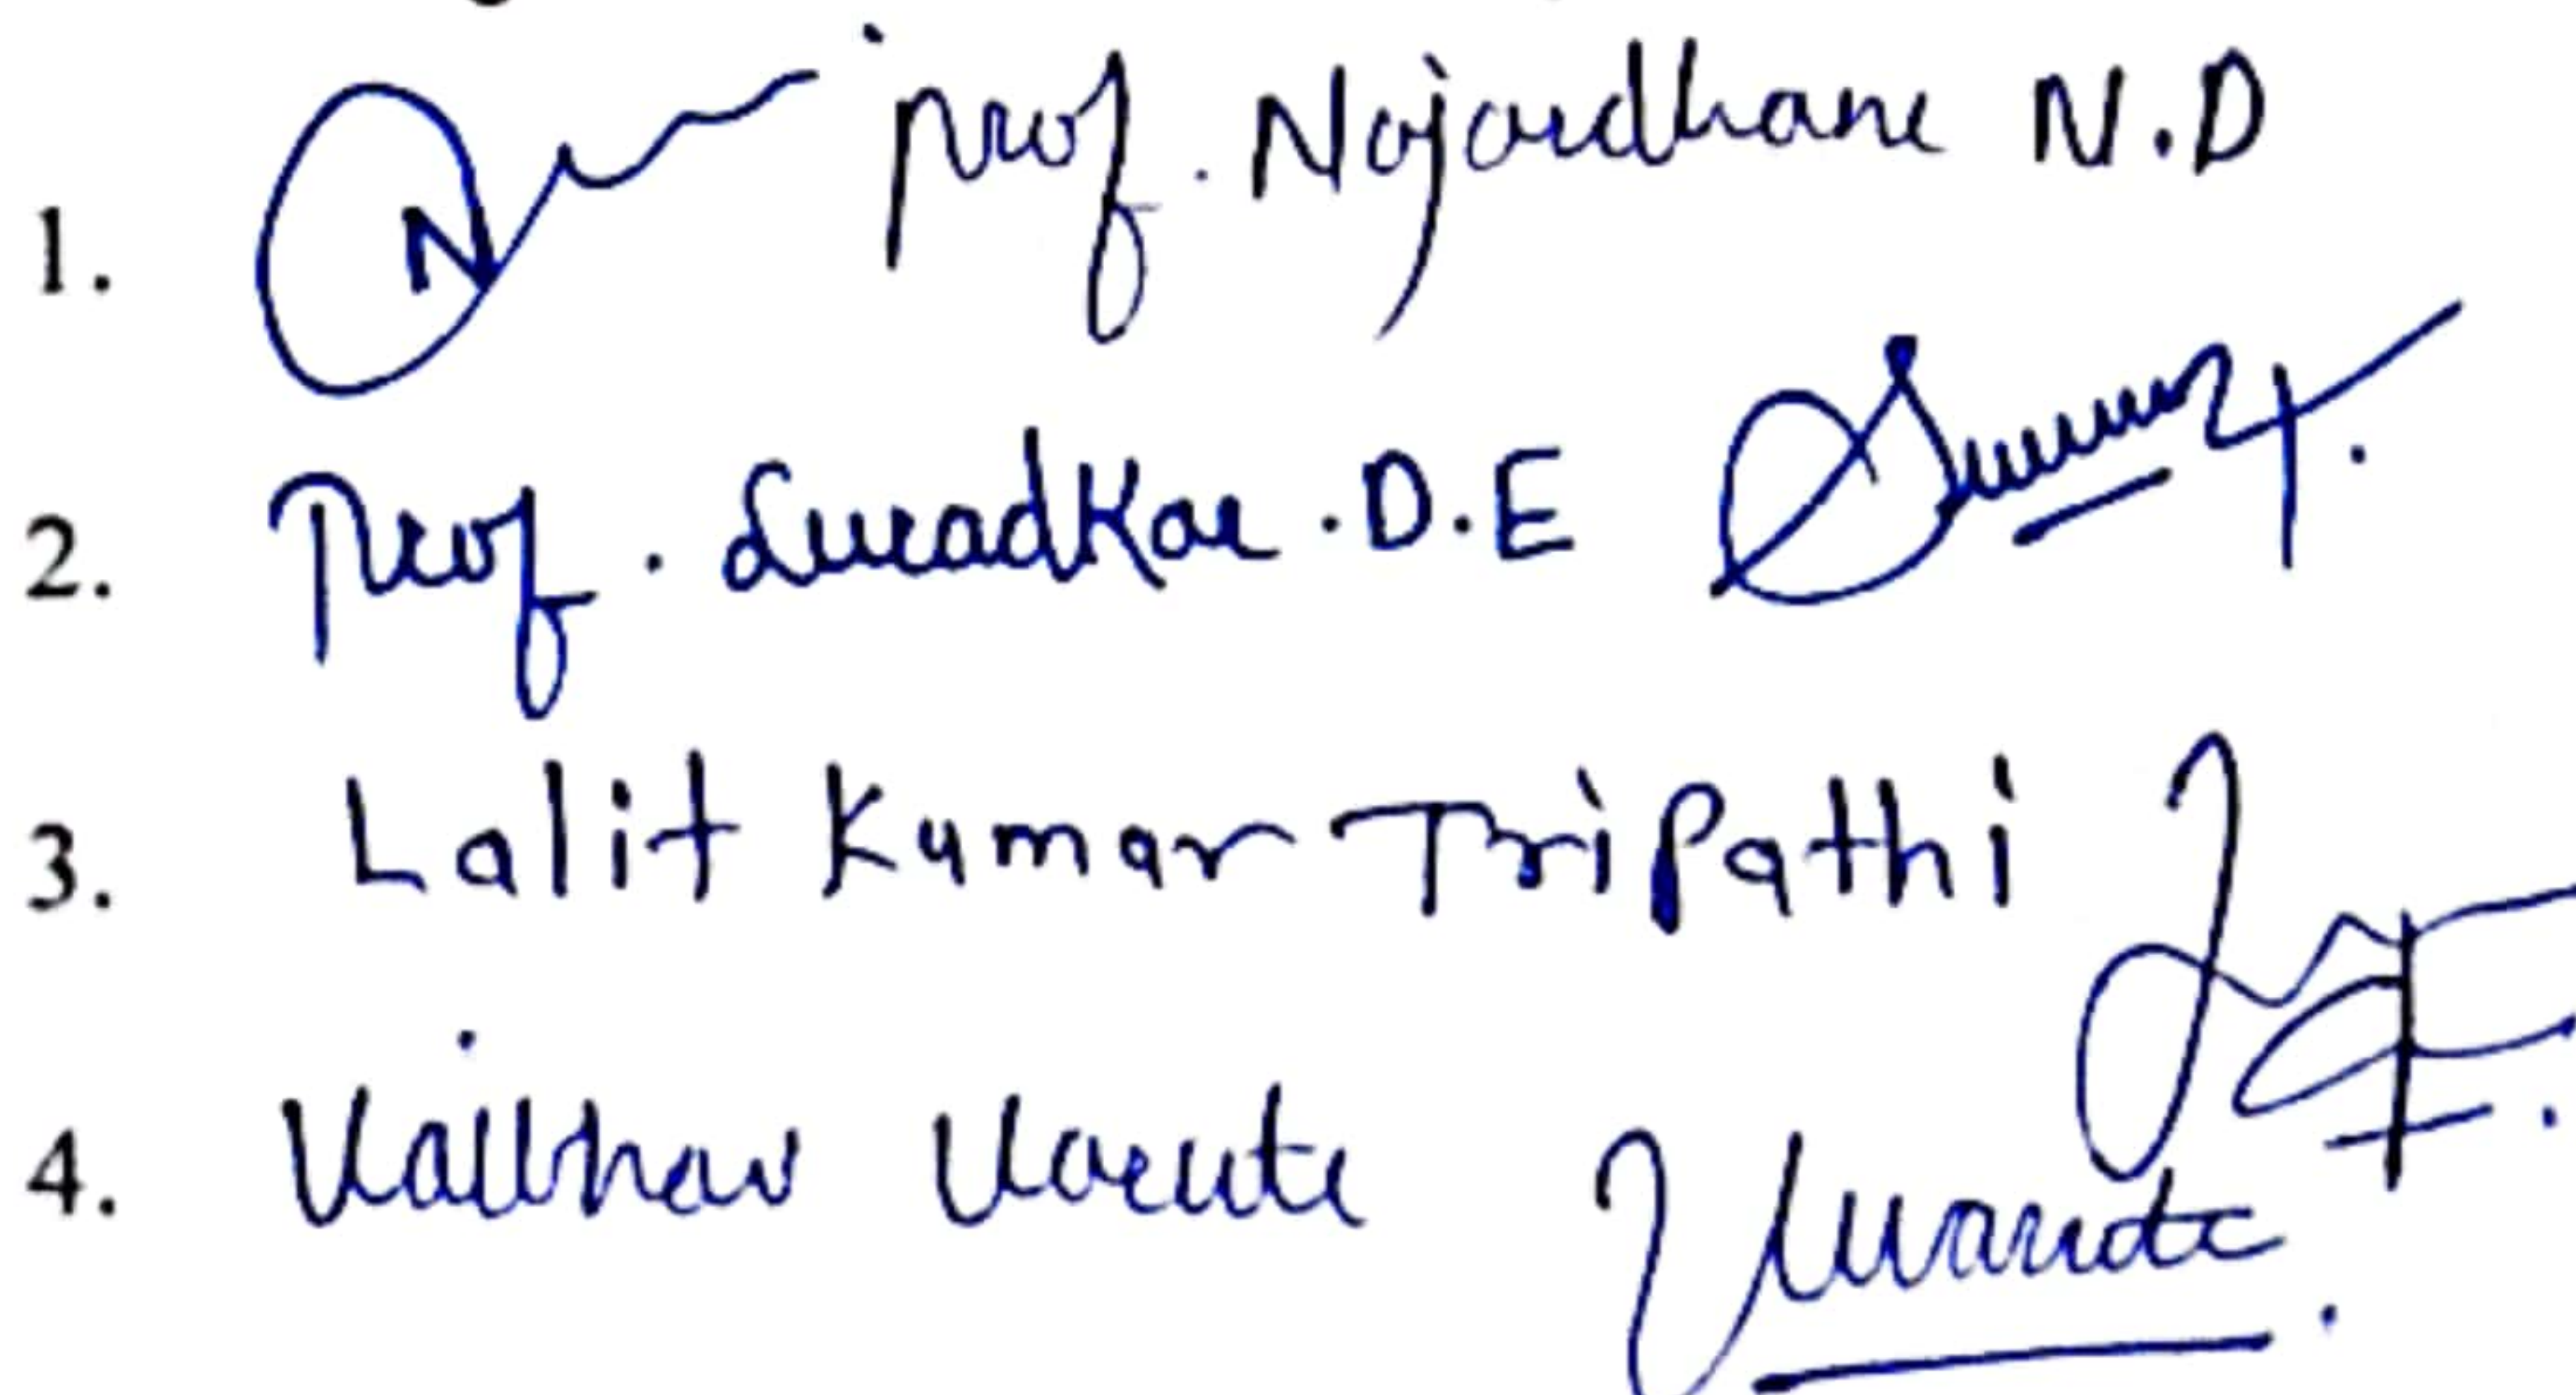 1. Prof. Najardhane N.D
2. Prof. Suradkar .D.E
3. Lalit Kumar Tripathi
4. Vaibhav Varute